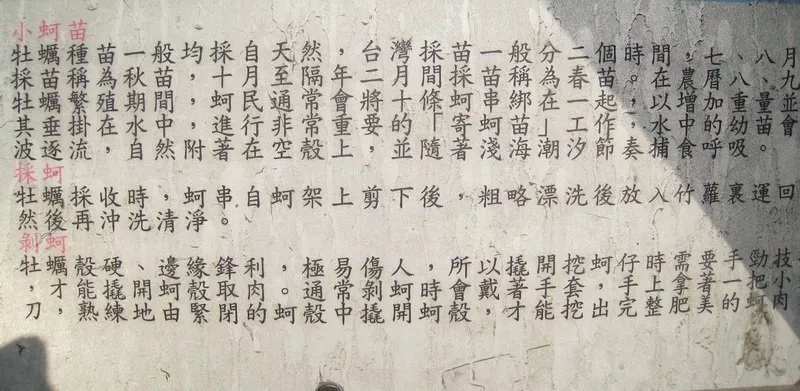 小蚵苗
牡蠣種苗一般均採自天然,台灣採苗一般分二個時間,七、八月
採苗稱為秋苗,十月至隔年二月間採苗稱為春苗。在農曆八、九
牡蠣繁殖期間,蚵民通常會將十條蚵串綁在一起,以增加重量並
其垂掛在水中,進行非常重要的「寄蚵苗」工作,水中的幼苗會
波逐流,自然附著在空殼上,並隨著淺海潮汐節奏捕食呼吸。
採蚵
牡蠣採收時,蚵串自蚵架上剪下後,粗略漂洗後放入竹蘿裏運回
然後再沖洗清淨。
剝蚵
牡蠣殼硬、邊緣鋒利,極易傷人,所以撬開挖蚵仔時需要手勁技
,才能撬開蚵殼取肉。通常剝蚵時會戴著手套,手上拿著一把小
刀,熟練地由緊閉的蚵殼中撬開蚵殼,才能挖出完整肥美的蚵肉